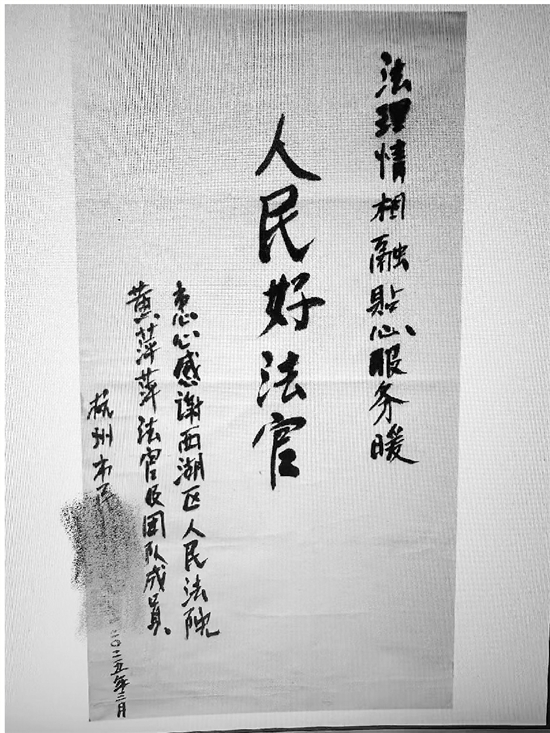 法理情相融贴心服务暖
人民好法官
衷心感谢西湖区人民法院
黄萍萍法官及团队成员
杭州市民
二〇二五年二月